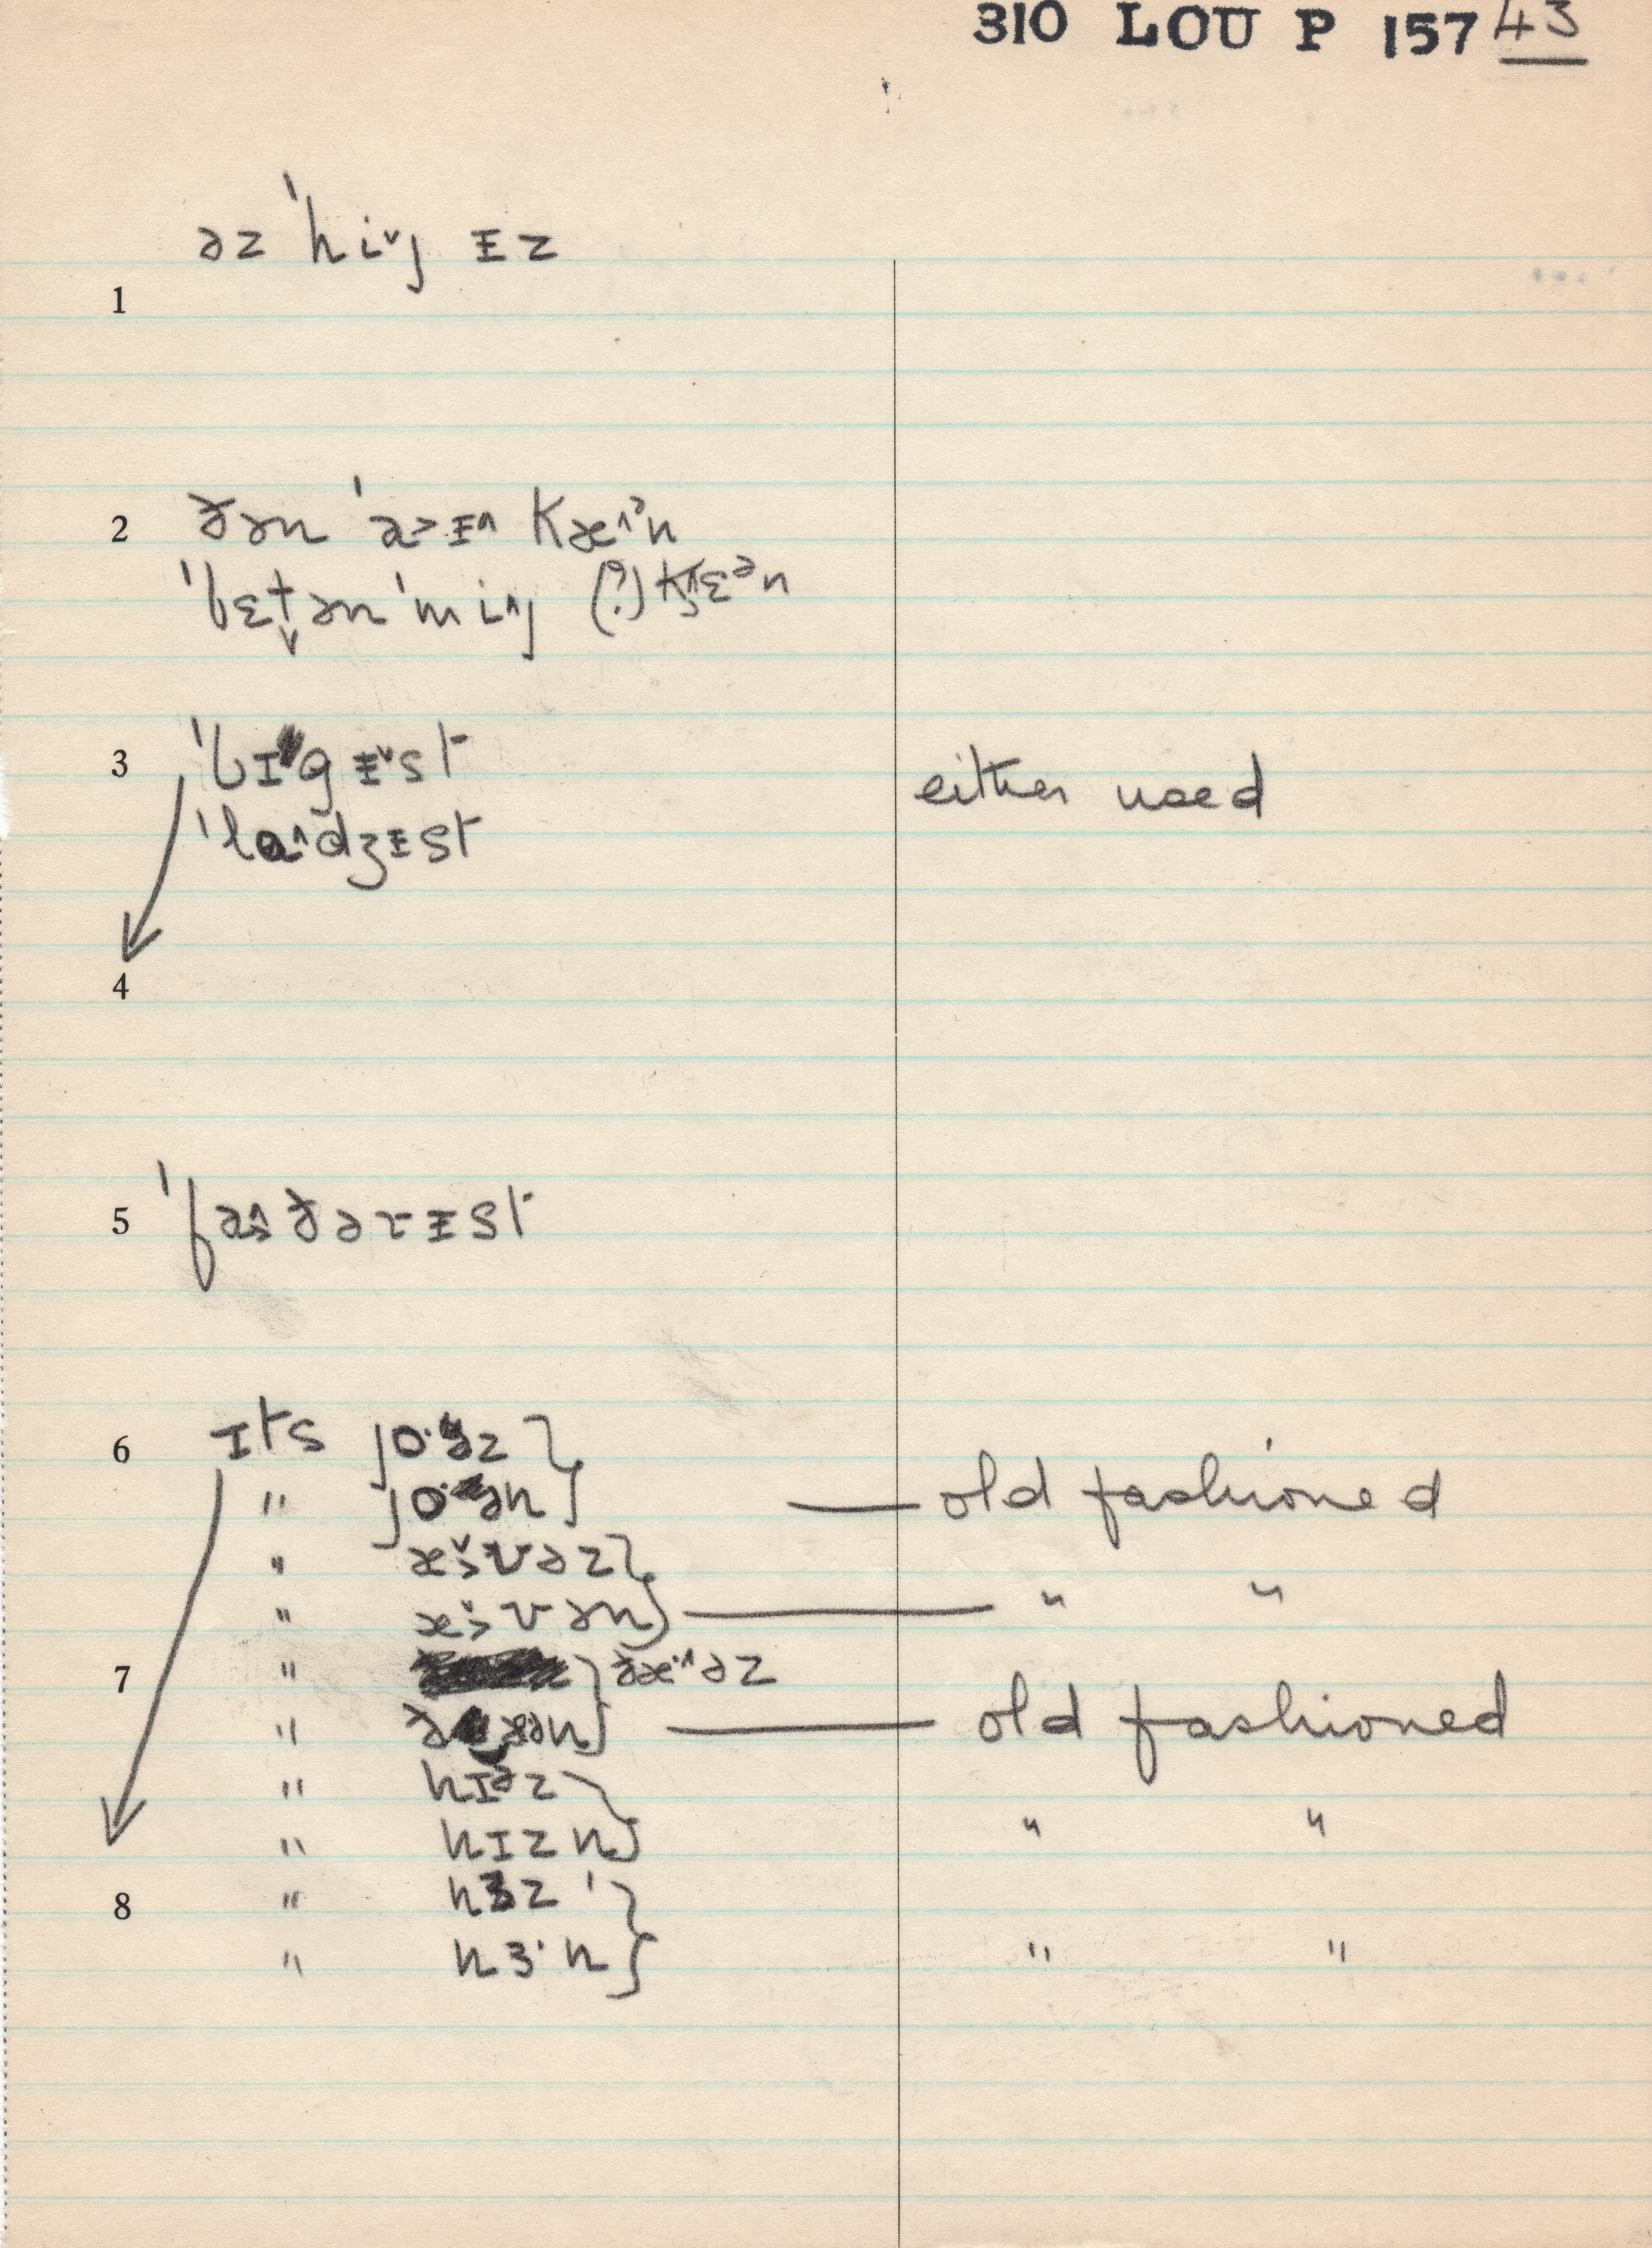 310 LOU P 157 43
əz ˈhi˅j ᵻz
1
2 ðən ˈa>ᵻ^ kæ^ᵊn
ˈbɛt̬ən ˈmi^j (?) kɛᵊn
3 ˈbɪgᵻ˅st either used
ˈla^dʒᵻst
4
5 ˈfa^ðərᵻst
6 ɪts jo·əz
" jo·ən old fashioned
" æ˅>vəz
" æ˅>vən " "
7 " ðæ·^əz
" old fashioned
" hɪəz
" hɪzn " "
8 " hɜz
" hɜ·n " "